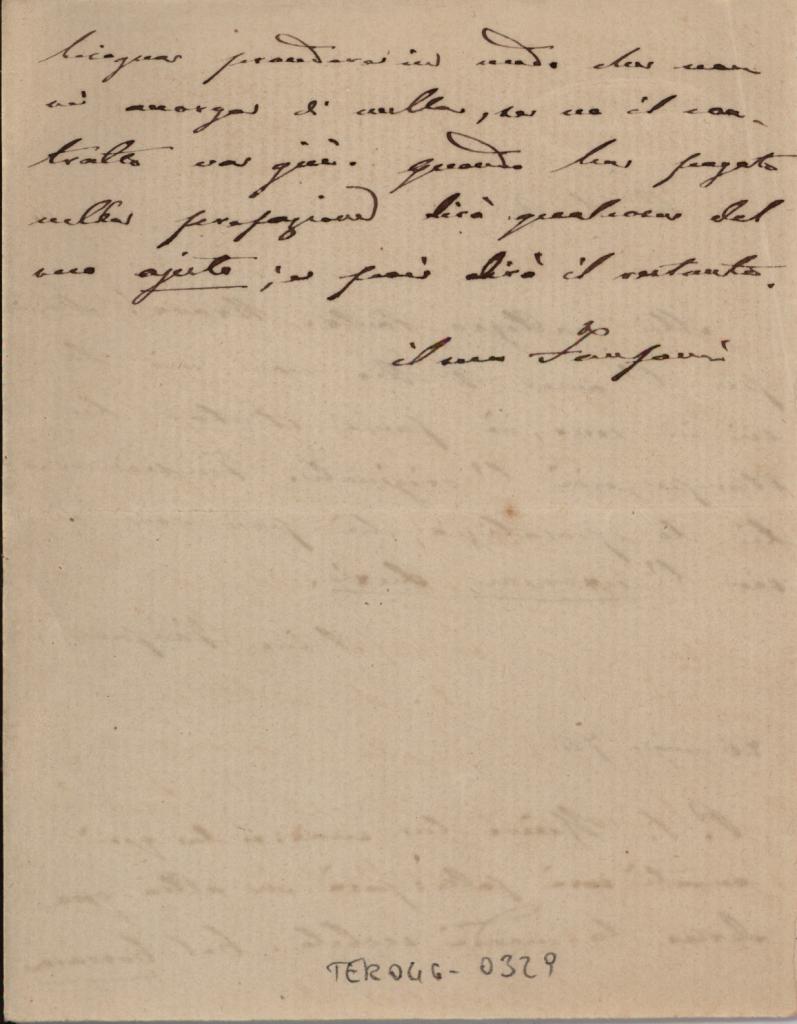 bisogna prendere in modo che non
si accorga di nulla, se no il con-
tratto va giù. quando ha pagato
nella prefazione dirà qualcosa del
suo ajuto; e poi dirà il restante.
il suo Fanfani
TER046-0329